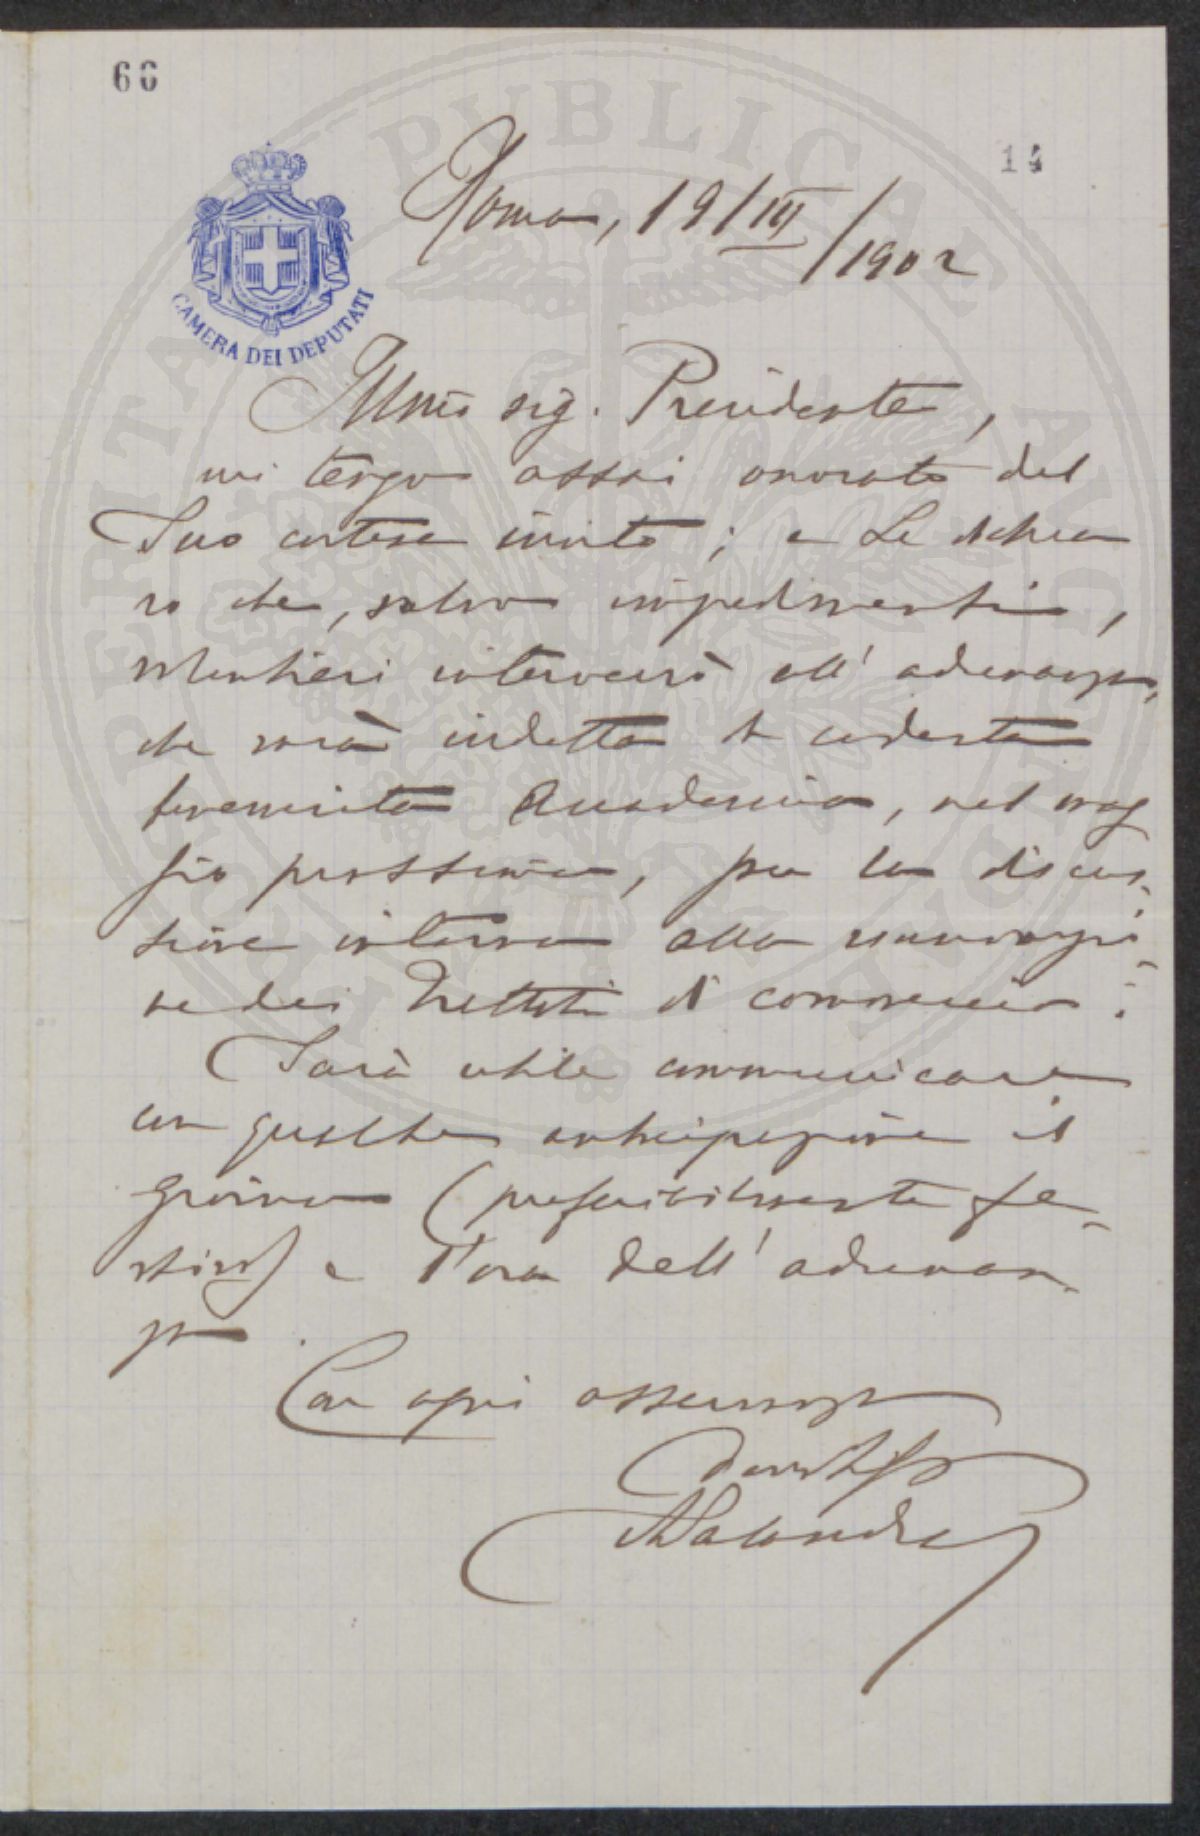 66
14
PERITALE PUBLICAE AUGENDAE
CAMERA DEI DEPUTATI
Roma, 19/III/1902
Illmo sig. Presidente,
mi tengo assai onorato del
Suo cortese invito; e Le dichia
ro che, salvo impedimenti,
volentieri interverrò all' adunanza,
che sarà indetta da codesta
benemerita Accademia, nel mag
gio prossimo, per la discus-
sione intorno alla rinnovazio-
ne dei Trattati di commercio.
Sarà utile comunicare
con qualche anticipazione il
giorno (preferibilmente fe-
stivo) e l'ora dell' adunan-
za.
Con ogni osservanza
devotiss
ASalandra